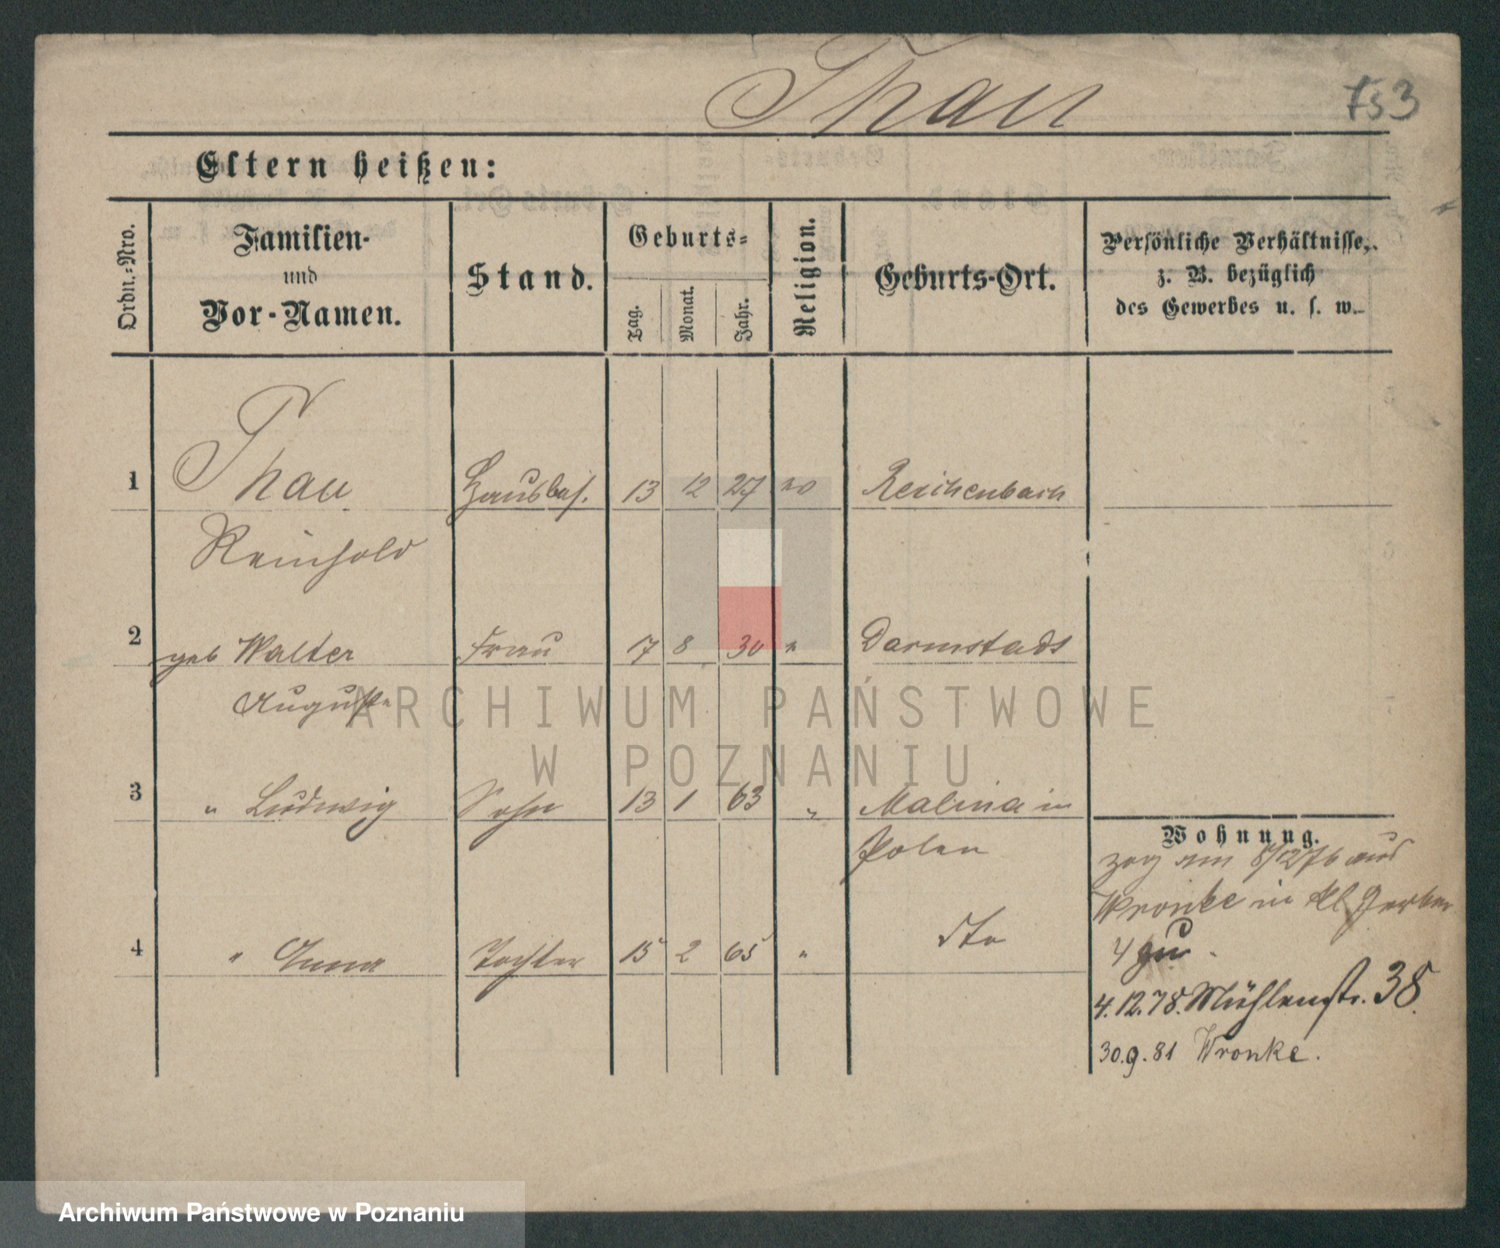 Thau
753
Eltern heißen:
Ordn.-Nro.
Familien-
und
Vor-Namen.
Stand.
Geburts-
Tag.
Monat.
Jahr.
Religion.
Geburts-Ort.
Persönliche Verhältnisse,
z. B. bezüglich
des Gewerbes u. s. w.
1 Thau Hausbes. 13 12 27 Reichenbach
Reinhold
2 geb Walter Frau 17 8 30 " Darmstadt
Auguste
3 " Ludwig Sohn 13 1 63 " Malina in
Polen
4 " Anna Tochter 15 2 65 " dto
Wohnung.
zog am 8/12 76 aus
Wronke in kl Gerber
4 zu
4.12.78. Mühlenstr. 38.
30.9.81 Wronke.
ARCHIWUM PAŃSTWOWE
W POZNANIU
Archiwum Państwowe w Poznaniu